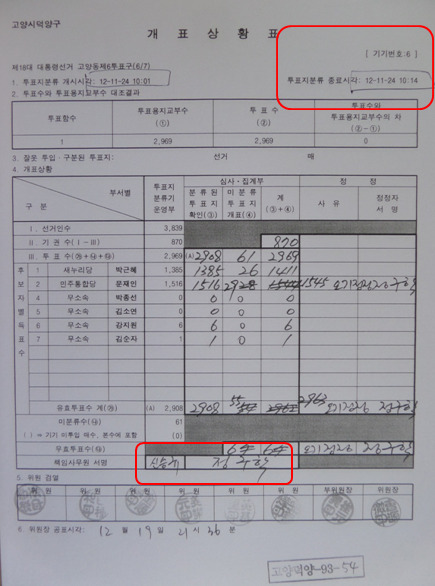 고양시덕양구
개 표 상 황 표
[ 기기번호:6 ]
제18대 대통령선거 고양동제6투표구(6/7)
1. 투표지분류 개시시각: 12-11-24 10:01 투표지분류 종료시각: 12-11-24 10:14
2. 투표수와 투표용지교부수 대조결과
투표함수 투표용지교부수 (①) 투 표 수 (②) 투표수와 투표용지교부수의 차 (②-①)
1 2,969 2,969 0
3. 잘못 투입·구분된 투표지: 선거 매
4. 개표상황
구 분 부서별 투표지 분류기 운영부 심사·집계부 정 정
분류된 투표지 확인(③) 미분류 투표지 개표(④) 계 (③+④) 사 유 정정자 서 명
Ⅰ. 선거인수 3,839
Ⅱ. 기 권 수(Ⅰ-Ⅲ) 870 870
Ⅲ. 투 표 수 2,969 (A) 2908 61 2969
후보자별득표수
1 새누리당 박근혜 1,385 1385 26 1411
2 민주통합당 문재인 1,516 1516 1545 오기정정
4 무소속 박종선 0 0 0 0
5 무소속 김소연 0 0 0 0
6 무소속 강지원 6 6 0 6
7 무소속 김순자 1 1 0 1
유효투표수 계 (A) 2,908 2908 55 2963 오기정정
미분류수 61
( ) ⇒ 기기 미투입 매수, 본수에 포함 (0)
무효투표수 6 6 오기정정
책임사무원 서명
5. 위원 검열
위 원 위 원 위 원 위 원 위 원 위 원 부위원장 위원장
6. 위원장 공표시각: 12 월 19 일 21 시 36 분
고양덕양-93-54